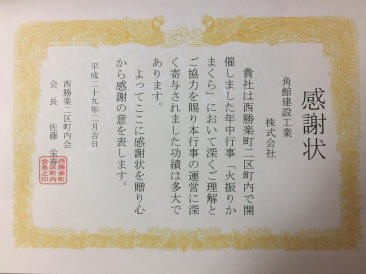 感謝状
角館建設工業
株式会社
貴社は西勝楽町二区町内で開
催しました年中行事「火振りか
まくら」において深くご理解と
ご協力を賜り本行事の運営に深
く寄与されました功績は多大で
あります。
よってここに感謝状を贈り心
から感謝の意を表します。
平成二十九年二月吉日
西勝楽二区町内会
会長 佐藤 栄
西勝楽町
二区町内
会長之印